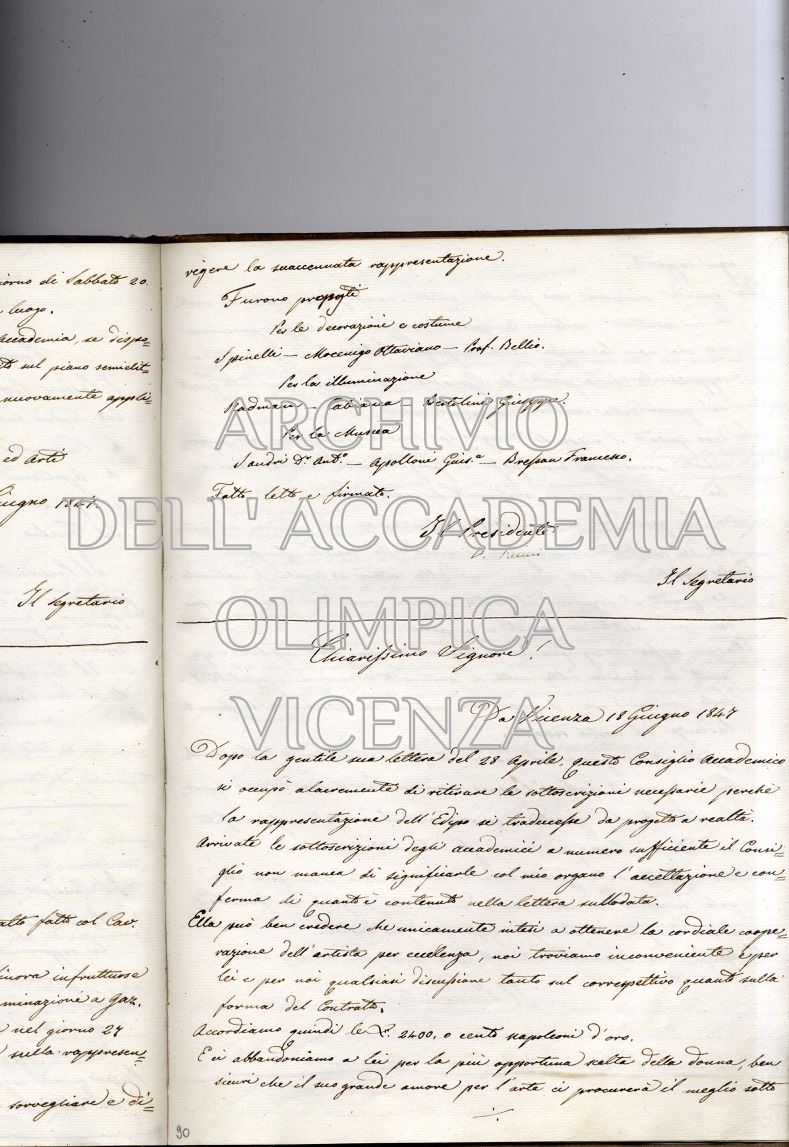 iorno di Sabbato 20.
luogo.
ccademia, se dispo=
sul piano semicir=
nuovamente appli=
ed Arti
iugno 1847.
Il Segretario
alto fatto col Cav.
inora infruttuose
minazione a Gaz.
nel giorno 27
sulla rappresen=
sorvegliare e di=
rigere la suaccennata rappresentazione.
Furono proposti
Per le decorazione e costume
Spinelli — Mocenigo Ottaviano — Prof. Bellio.
Per la illuminazione
Fabiana Bertolini Giuseppe
Per la Musica
Sandri Dr. Anto. — Apolloni Gius.e — Bressan Francesco.
Fatto letto e firmato.
Il Presidente
Il Segretario
Chiarissimo Signore!
Da Vicenza 18 Giugno 1847
Dopo la gentile sua lettera del 28 Aprile, questo Consiglio Accademico
si occupò alacremente di ritirare le sottoscrizioni necessarie perchè
la rappresentazione dell'Edipo si traducesse da progetto a realtà.
Arrivate le sottoscrizioni degli accademici a numero sufficiente il Consi=
glio non manca di significarle col mio organo l'accettazione e con=
ferma di quanto è contenuto nella lettera sullodata.
Ella può ben credere che unicamente intesi a ottenere la cordiale coope=
razione dell'artista per eccelenza, noi troviamo inconveniente e per
lei e per noi qualsiasi discussione tanto sul correspettivo quanto sulla
forma del Contratto.
Accordiamo quindi le £. 2400, o cento napoleoni d'oro.
E ci abbandoniamo a lei per la più opportuna scelta della donna, ben
sicuri che il suo grande amore per l'arte ci procurerà il meglio sotto
90
ARCHIVIO
DELL' ACCADEMIA
OLIMPICA
VICENZA